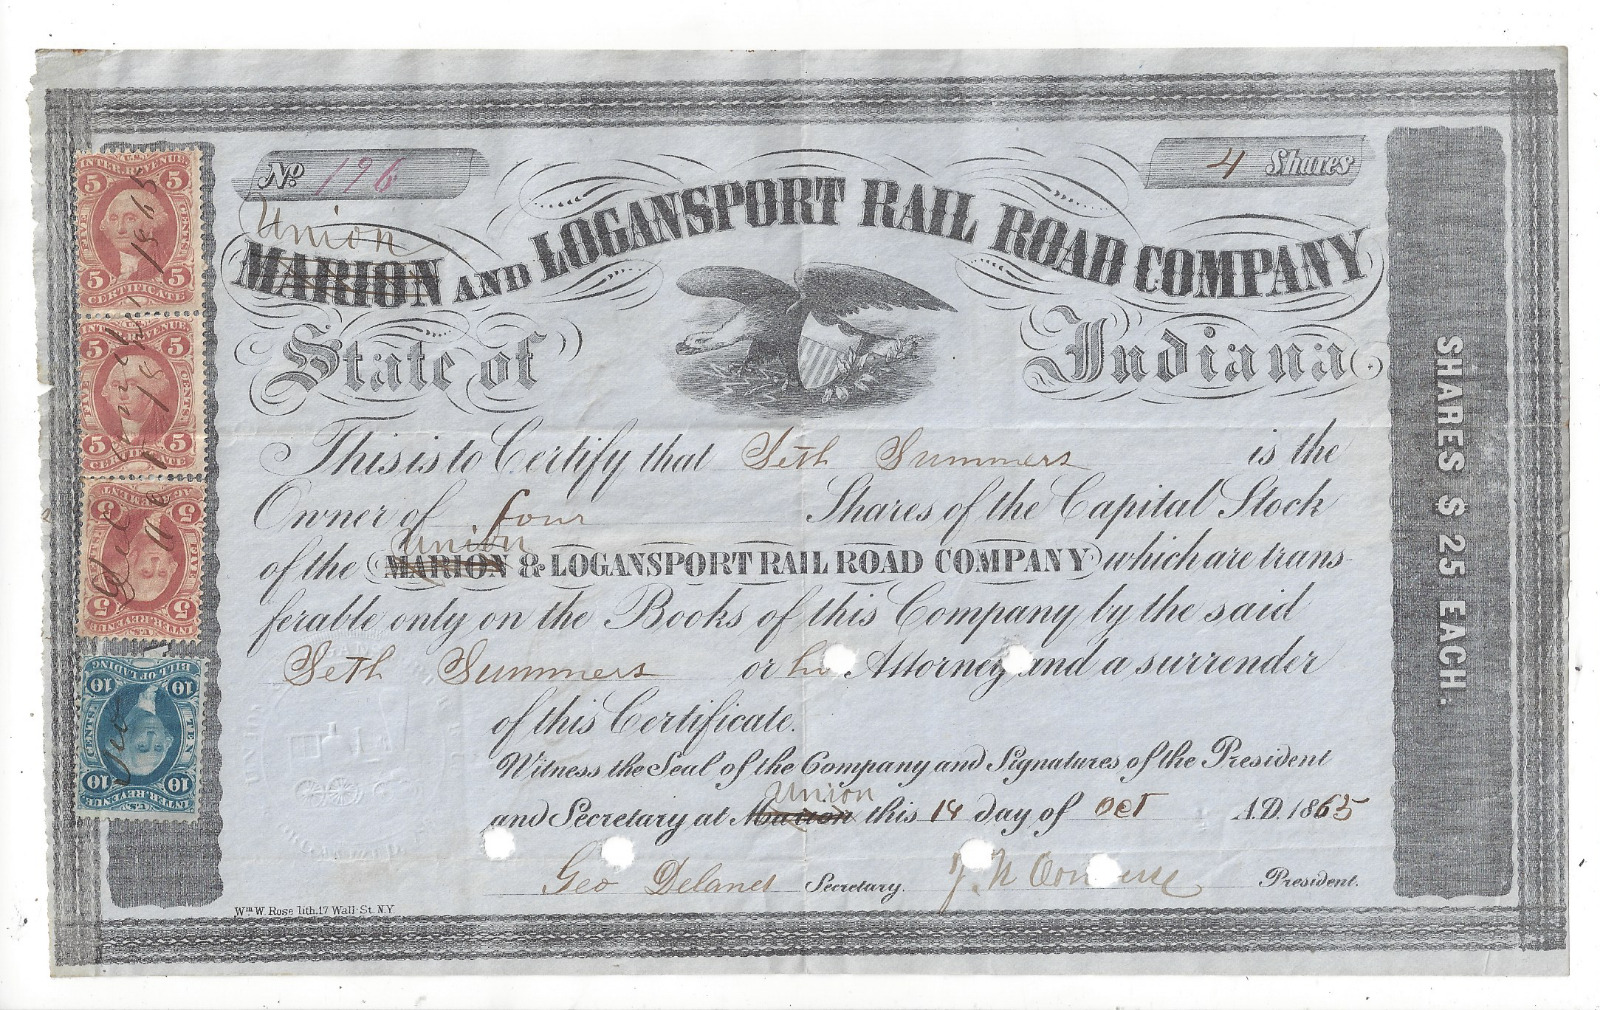 No 196
4 Shares
Union
MARION AND LOGANSPORT RAIL ROAD COMPANY
State of Indiana
This is to Certify that Seth Summers is the
Owner of four Shares of the Capital Stock
Union
of the MARION & LOGANSPORT RAIL ROAD COMPANY which are trans-
ferable only on the Books of this Company by the said
Seth Summers or his Attorney and a surrender
of this Certificate.
Witness the Seal of the Company and Signatures of the President
Union
and Secretary at Marion this 14 day of Oct A.D. 1865
Geo Secretary. President.
Wm W. Rose lith. 17 Wall St. N.Y
SHARES $ 25 EACH.
INTER. REVENUE
5 U.S. 5
FIVE CENTS
5 5
CERTIFICATE
INTER. REVENUE
5 5
FIVE CENTS.
5 5
CERTIFICATE
AGREEMENT
5 5
FIVE CENTS
5 5
INTER. REVENUE
U.S.
BILL OF LADING
10 10
TEN CENTS
10 10
INTER. REVENUE
U.S.